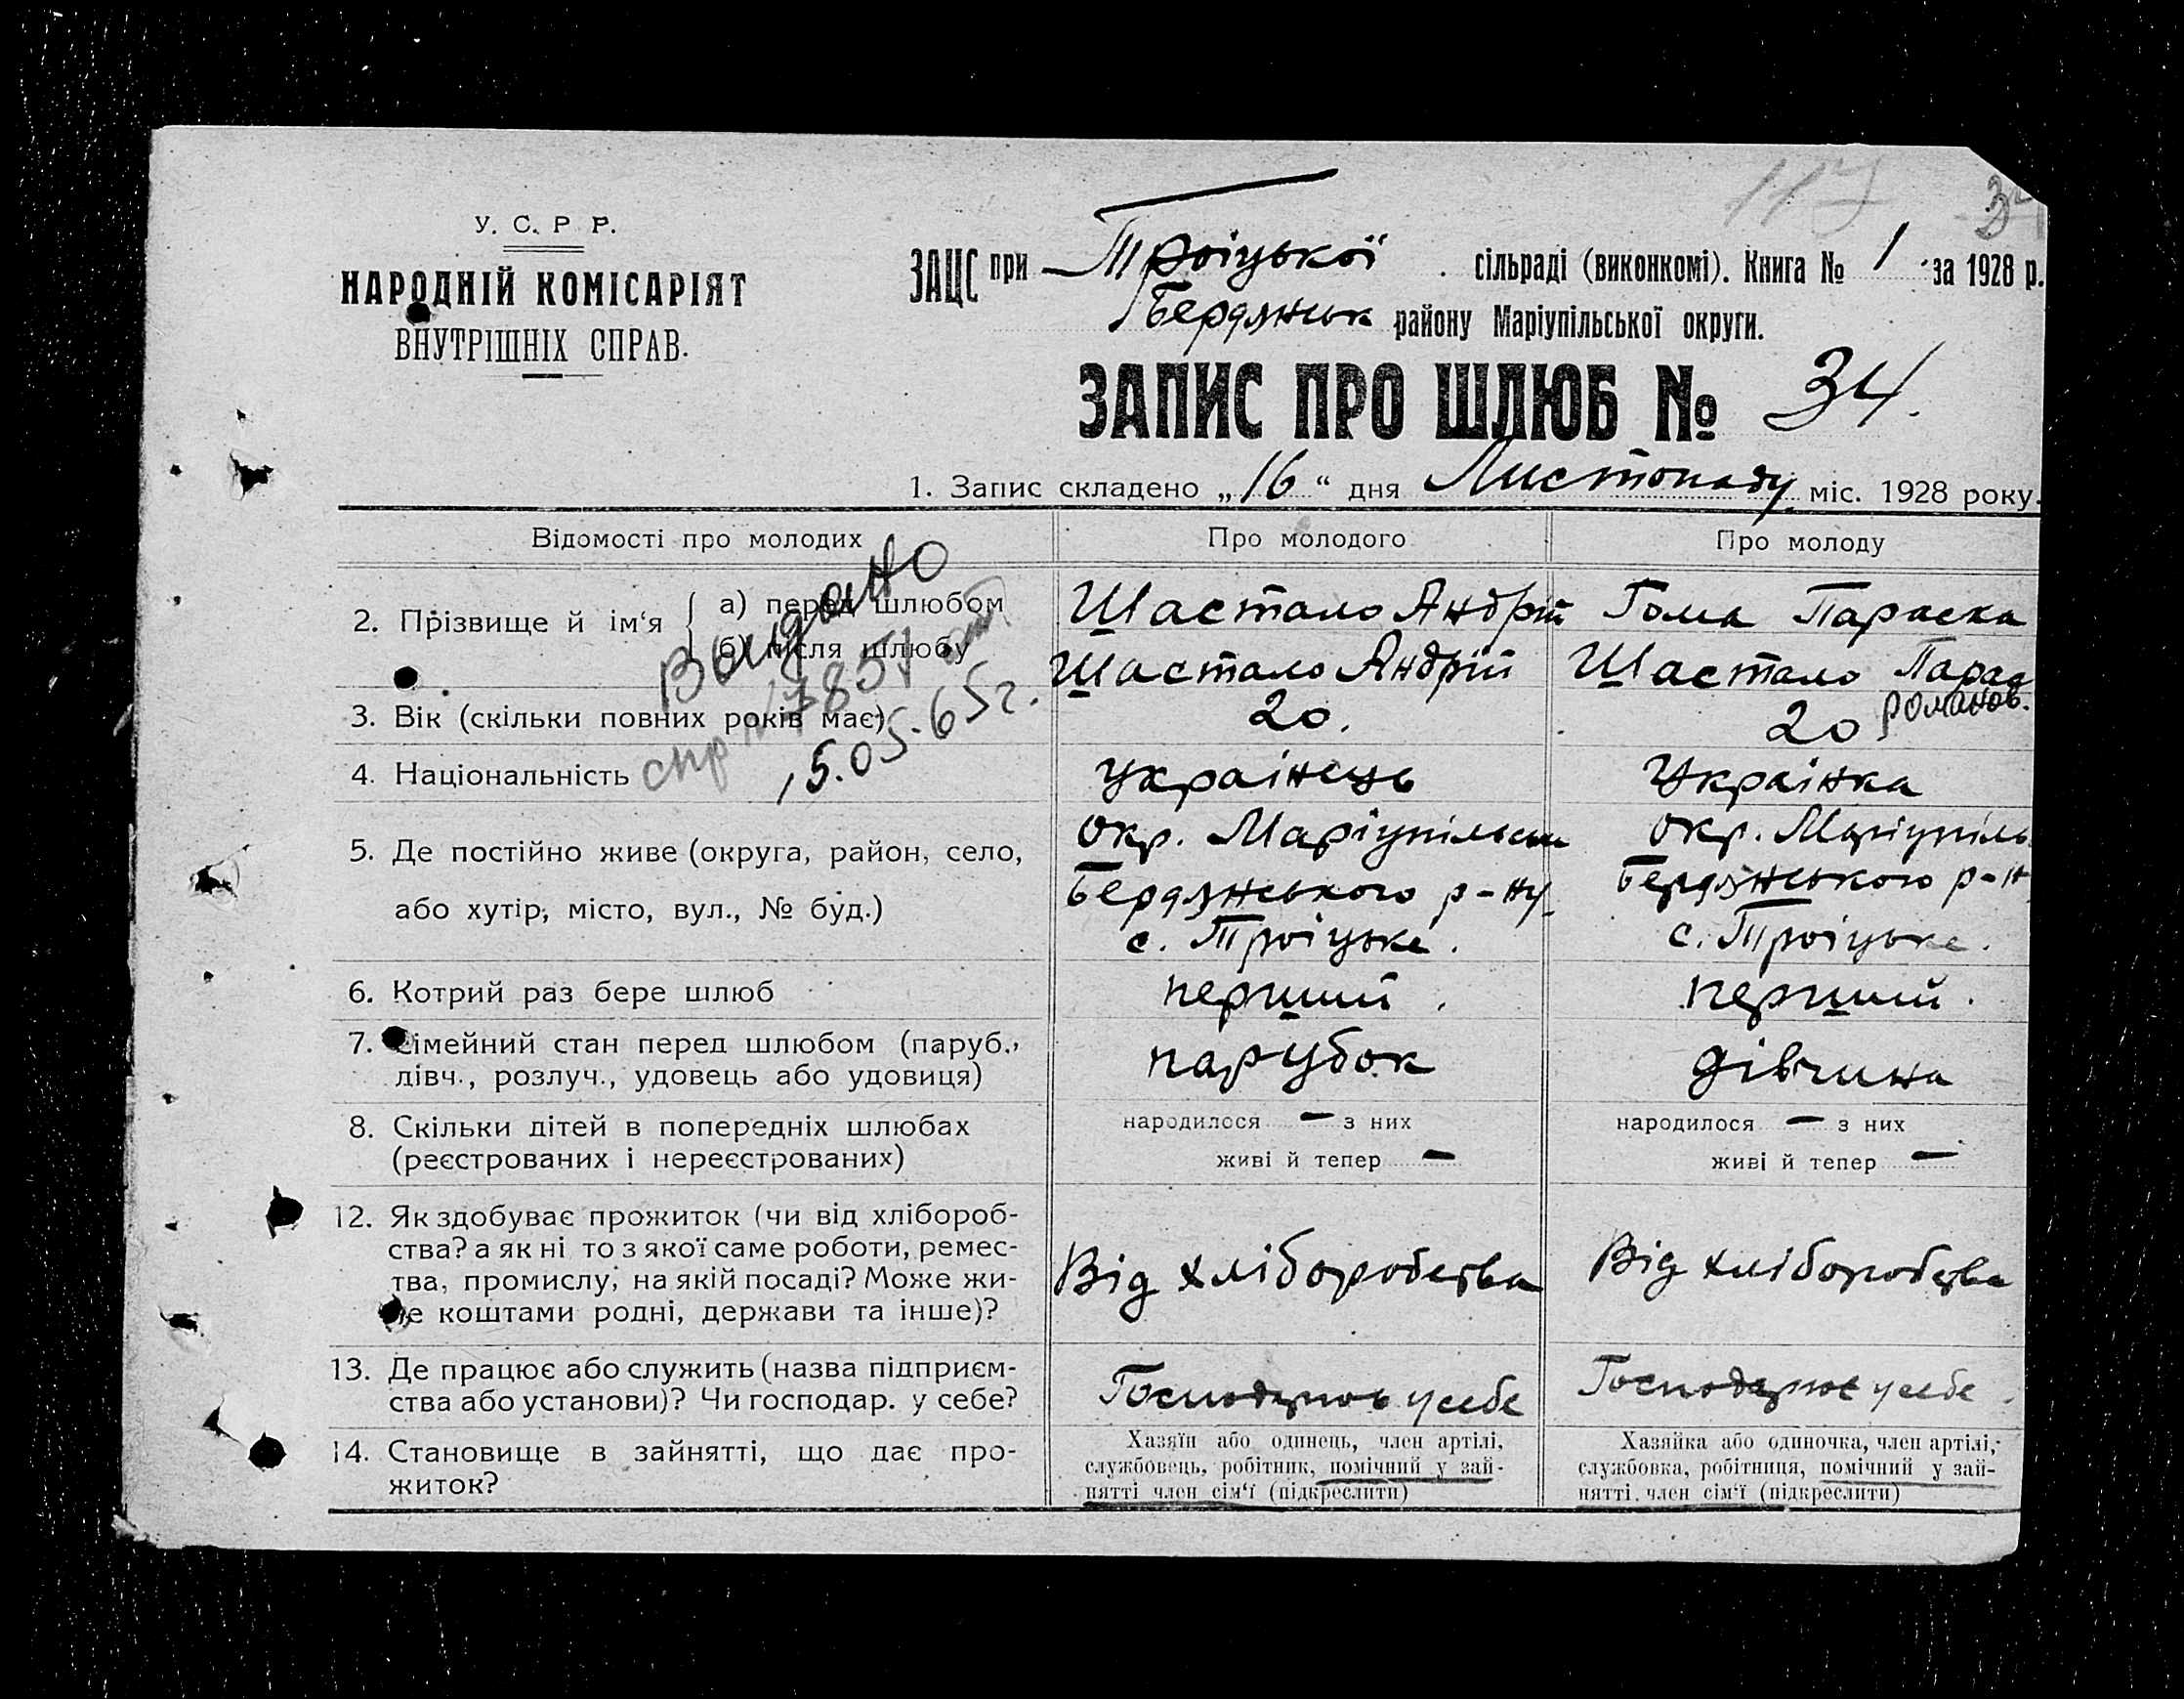 117 34
У. С. Р Р.
НАРОДНІЙ КОМІСАРІЯТ
ВНУТРІШНІХ СПРАВ.
ЗАЦС при Троіцькоі сільраді (виконкомі). Книга № 1 за 1928 р.
Бердянськ району Маріупільської округи.
ЗАПИС ПРО ШЛЮБ № 34.
1. Запис складено „16“ дня Листопаду міс. 1928 року.
Відомості про молодих Про молодого Про молоду
2. Прізвище й ім‘я
а) перед шлюбом Шастало Андрій Гома Параска
б) після шлюбу Шастало Андрій Шастало Парас
Романов.
Выдано
спр № 7851
15.05.65г.
3. Вік (скільки повних років має) 20. 20
4. Національність украінець Украінка
5. Де постійно живе (округа, район, село, або хутір, місто, вул., № буд.)
окр. Маріупільськ окр. Маріупіль
Бердянського р-ну Бердянського р-н
с. Троіцьке. с. Троіцьке.
6. Котрий раз бере шлюб перший. перший.
7. Сімейний стан перед шлюбом (паруб., парубок дівчина
дівч., розлуч., удовець або удовиця)
8. Скільки дітей в попередніх шлюбах народилося — з них народилося — з них
(реєстрованих і нереєстрованих) живі й тепер — живі й тепер —
12. Як здобуває прожиток (чи від хлібороб-
ства? а як ні то з якої саме роботи, ремес-
тва, промислу, на якій посаді? Може жи-
ве коштами родні, держави та інше)?
Від хліборобства Від хліборобства
13. Де працює або служить (назва підприєм-
ства або установи)? Чи господар. у себе?
Господарює у себе Господарює у себе
14. Становище в зайнятті, що дає про-
житок?
Хазяїн або одинець, член артілі,
службовець, робітник, помічний у зай-
нятті член сім‘ї (підкреслити)
Хазяйка або одиночка, член артілі,
службовка, робітниця, помічний у зай-
нятті член сім‘ї (підкреслити)